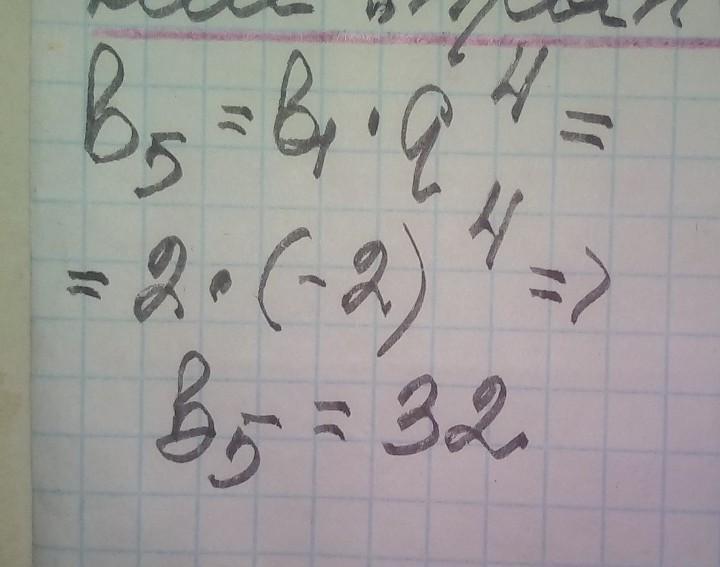 b₅ = b₁ · q⁴ =
= 2 · (-2)⁴ =>
b₅ = 32